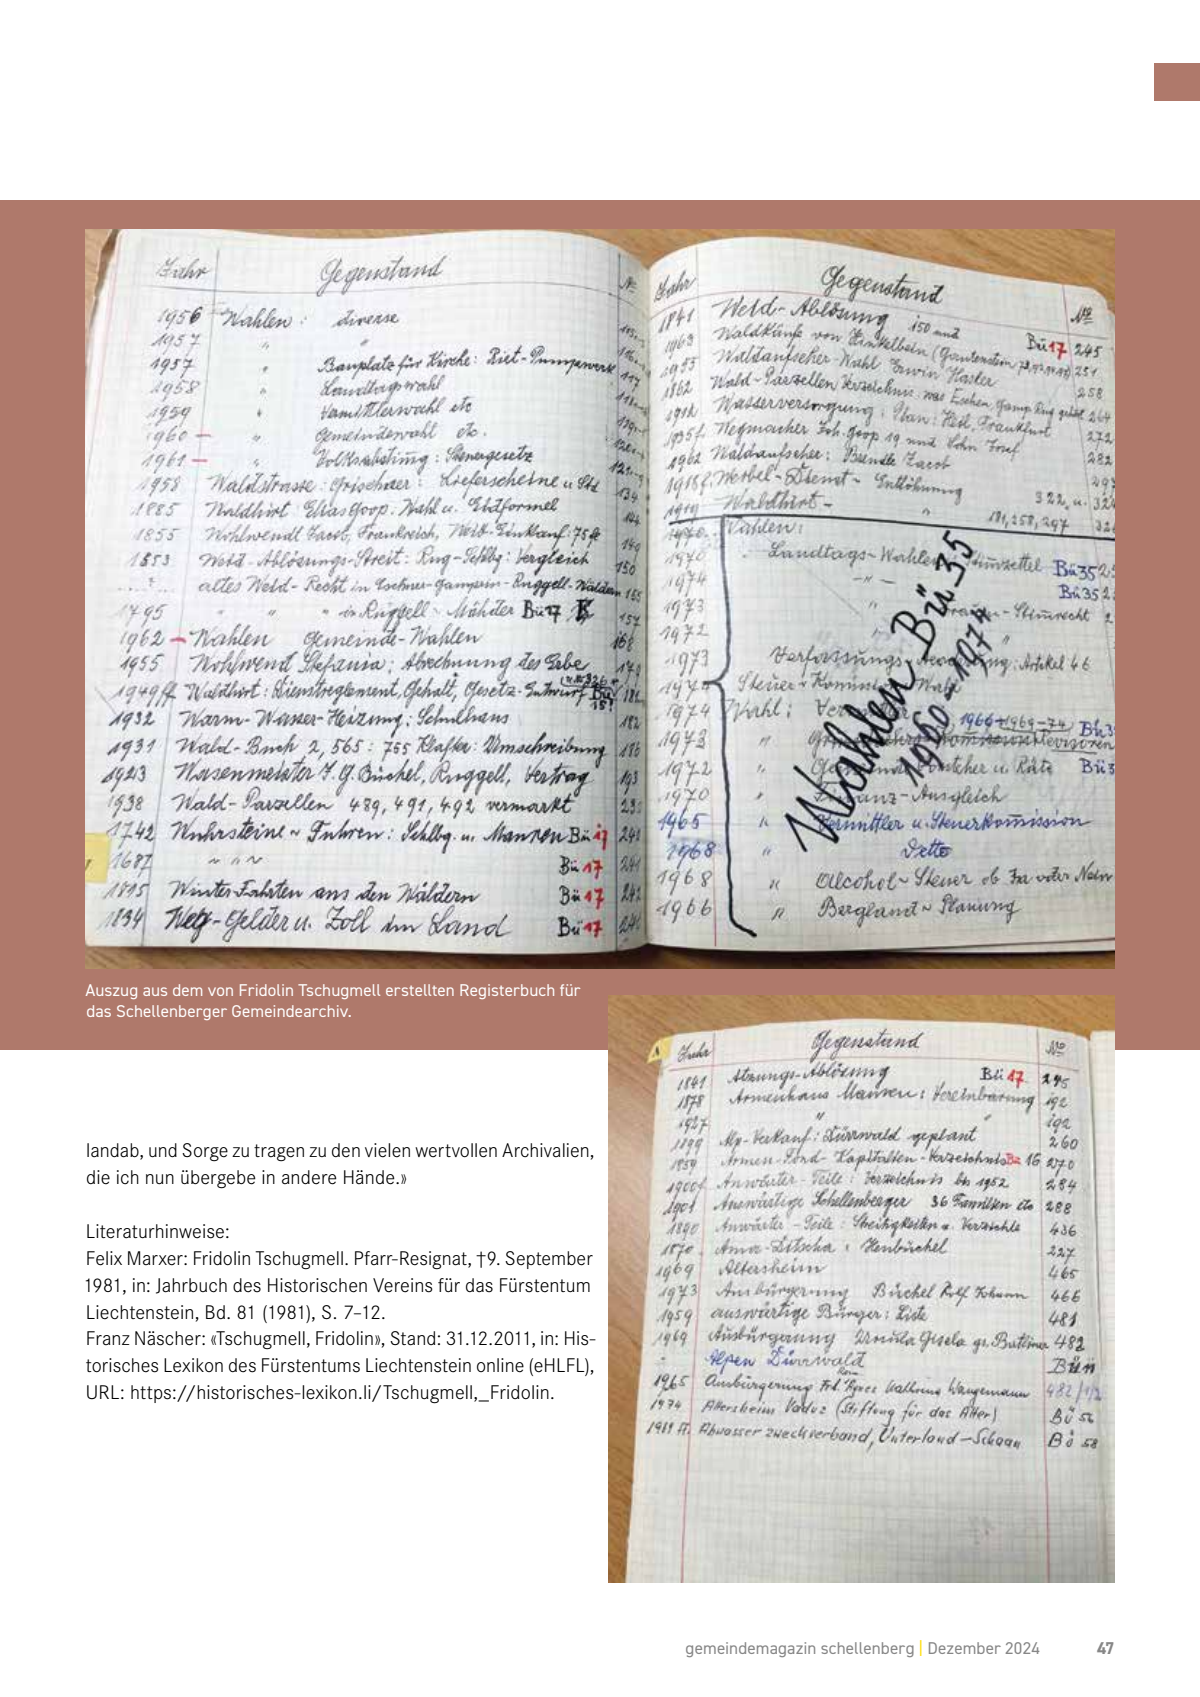 Jahr Gegenstand No
1956 Wahlen: diverse
1957 " "
1957 " Bauplatz für Kirche: Riet-Pumpwerk
1958 " Landtagswahl
1959 " Vermittlerwahl etc
1960 " Gemeindewahl etc.
1961 " Volksabstimg: Steuergesetz
1958 Waldstrasse: Grischaer: Lieferscheine u. Std 134
1885 Waldhirt Elias Goop. Wahl u. Eidformel 144
1855 Wohlwendt Jacob, Frankreich, 149
1853 Weid-Ablösungs-Streit: Rug-Schlbg: Vergleich 150
altes Weid-Recht in Eschner-Gamprin-Ruggell-Wäldern 155
1795 " " " in Ruggell-Mähder Bü 17 157
1962 Wahlen Gemeinde-Wahlen 168
1955 Wohlwend Stefania: Abrechnung des Erbe 179
1949ff Waldhirt: Dienstreglement, Gehalt, Gesetz-Entwurf Bü
1932 Warm-Wasser-Heizung: Schulhaus 182
1931 Wald-Buch 2, 565: 755 Klafter: Umschreibung 186
1923 Wasenmeister J. G. Büchel, Ruggell, Vertrag 193
1938 Wald-Parzellen 489, 491, 492 vermarkt
1742 Wuhrsteine ~ Fuhren: Schlbg. u. Mauren Bü 17 241
1687 " " " Bü 17 241
1815 Winter-Fahrten aus den Wäldern Bü 17 242
1834 Weg-Gelder u. Zoll im Land Bü 17
Jahr Gegenstand No
1841 Weid-Ablösung Bü 17 245
1963 Waldkäufe von Hinkelbein 251
1955 Waldaufseher-Wahl Erwin Hasler 258
1862 Wald-Parzellen Verzeichnis was Eschen, Gamp Rug gehört 264
1912 Wasserversorgung: Plan: Heil, Frankfurt 272
1935f Wegmacher Joh. Goop 19 und Sohn Josef 282
1962 Waldaufseher: Büchel Jacob
1918f Werbel-Dienst-Entlöhnung
1919 Waldhirt - " 181, 258, 297
1970 Wahlen:
1970 Landtags-Wahlen Stimmzettel Bü 35
1974 - " - Bü 35
1973 " Frauen-Stimrecht
1972 " "
1973 Verfassungs-Abänderung: Artikel 46
1974 Steuer-Komission Wahl
1974 Wahl:
1973 "
1972 " Gemeinde Vorsteher u. Räte Bü 3
1970 " Finanz-Ausgleich
1965 " Vermittler u. Steuerkomission
1968 " Detto
1968 " Alcohol-Steuer ob Ja oder Nein
1966 " Bergland ~ Planung
Wahlen Bü 35
1960-1974
Auszug aus dem von Fridolin Tschugmell erstellten Registerbuch für
das Schellenberger Gemeindearchiv.
A Jahr Gegenstand No
1841 Atzungs-Ablösung Bü 17 245
1878 Armenhaus Mauren: Vereinbarung 192
1927 " " 192
1899 Alp-Verkauf: Dürrwald geplant 260
1859 Armen-Fond-Kapitalien-Verzeichnis Bü 16 270
1900f Anwärter-Teile: Verzeichnis bis 1952 284
1901 Auswärtige Schellenberger 36 Familien etc 288
1890 Anwärter-Teile: Streitigkeiten u. Verzichte 436
1870 227
1969 Altersheim 465
1973 Ausbürgerung Büchel Rolf Johann 466
1959 auswärtige Bürger: Liste 481
1969 Ausbürgerung Ursula Gisela gs. Batliner 482
- Alpen Dürrwald
1965 Ausbürgerung Frl. Agnes Kathrina Wangemann 482/1/2
1974 Altersheim Vaduz (Stiftung für das Alter) Bü 56
Abwasserzweckverband, Unterland-Schaan Bü 58
landab, und Sorge zu tragen zu den vielen wertvollen Archivalien,
die ich nun übergebe in andere Hände.»
Literaturhinweise:
Felix Marxer: Fridolin Tschugmell. Pfarr-Resignat, †9. September
1981, in: Jahrbuch des Historischen Vereins für das Fürstentum
Liechtenstein, Bd. 81 (1981), S. 7–12.
Franz Näscher: «Tschugmell, Fridolin», Stand: 31.12.2011, in: His-
torisches Lexikon des Fürstentums Liechtenstein online (eHLFL),
URL: https://historisches-lexikon.li/Tschugmell,_Fridolin.
gemeindemagazin schellenberg | Dezember 2024 47